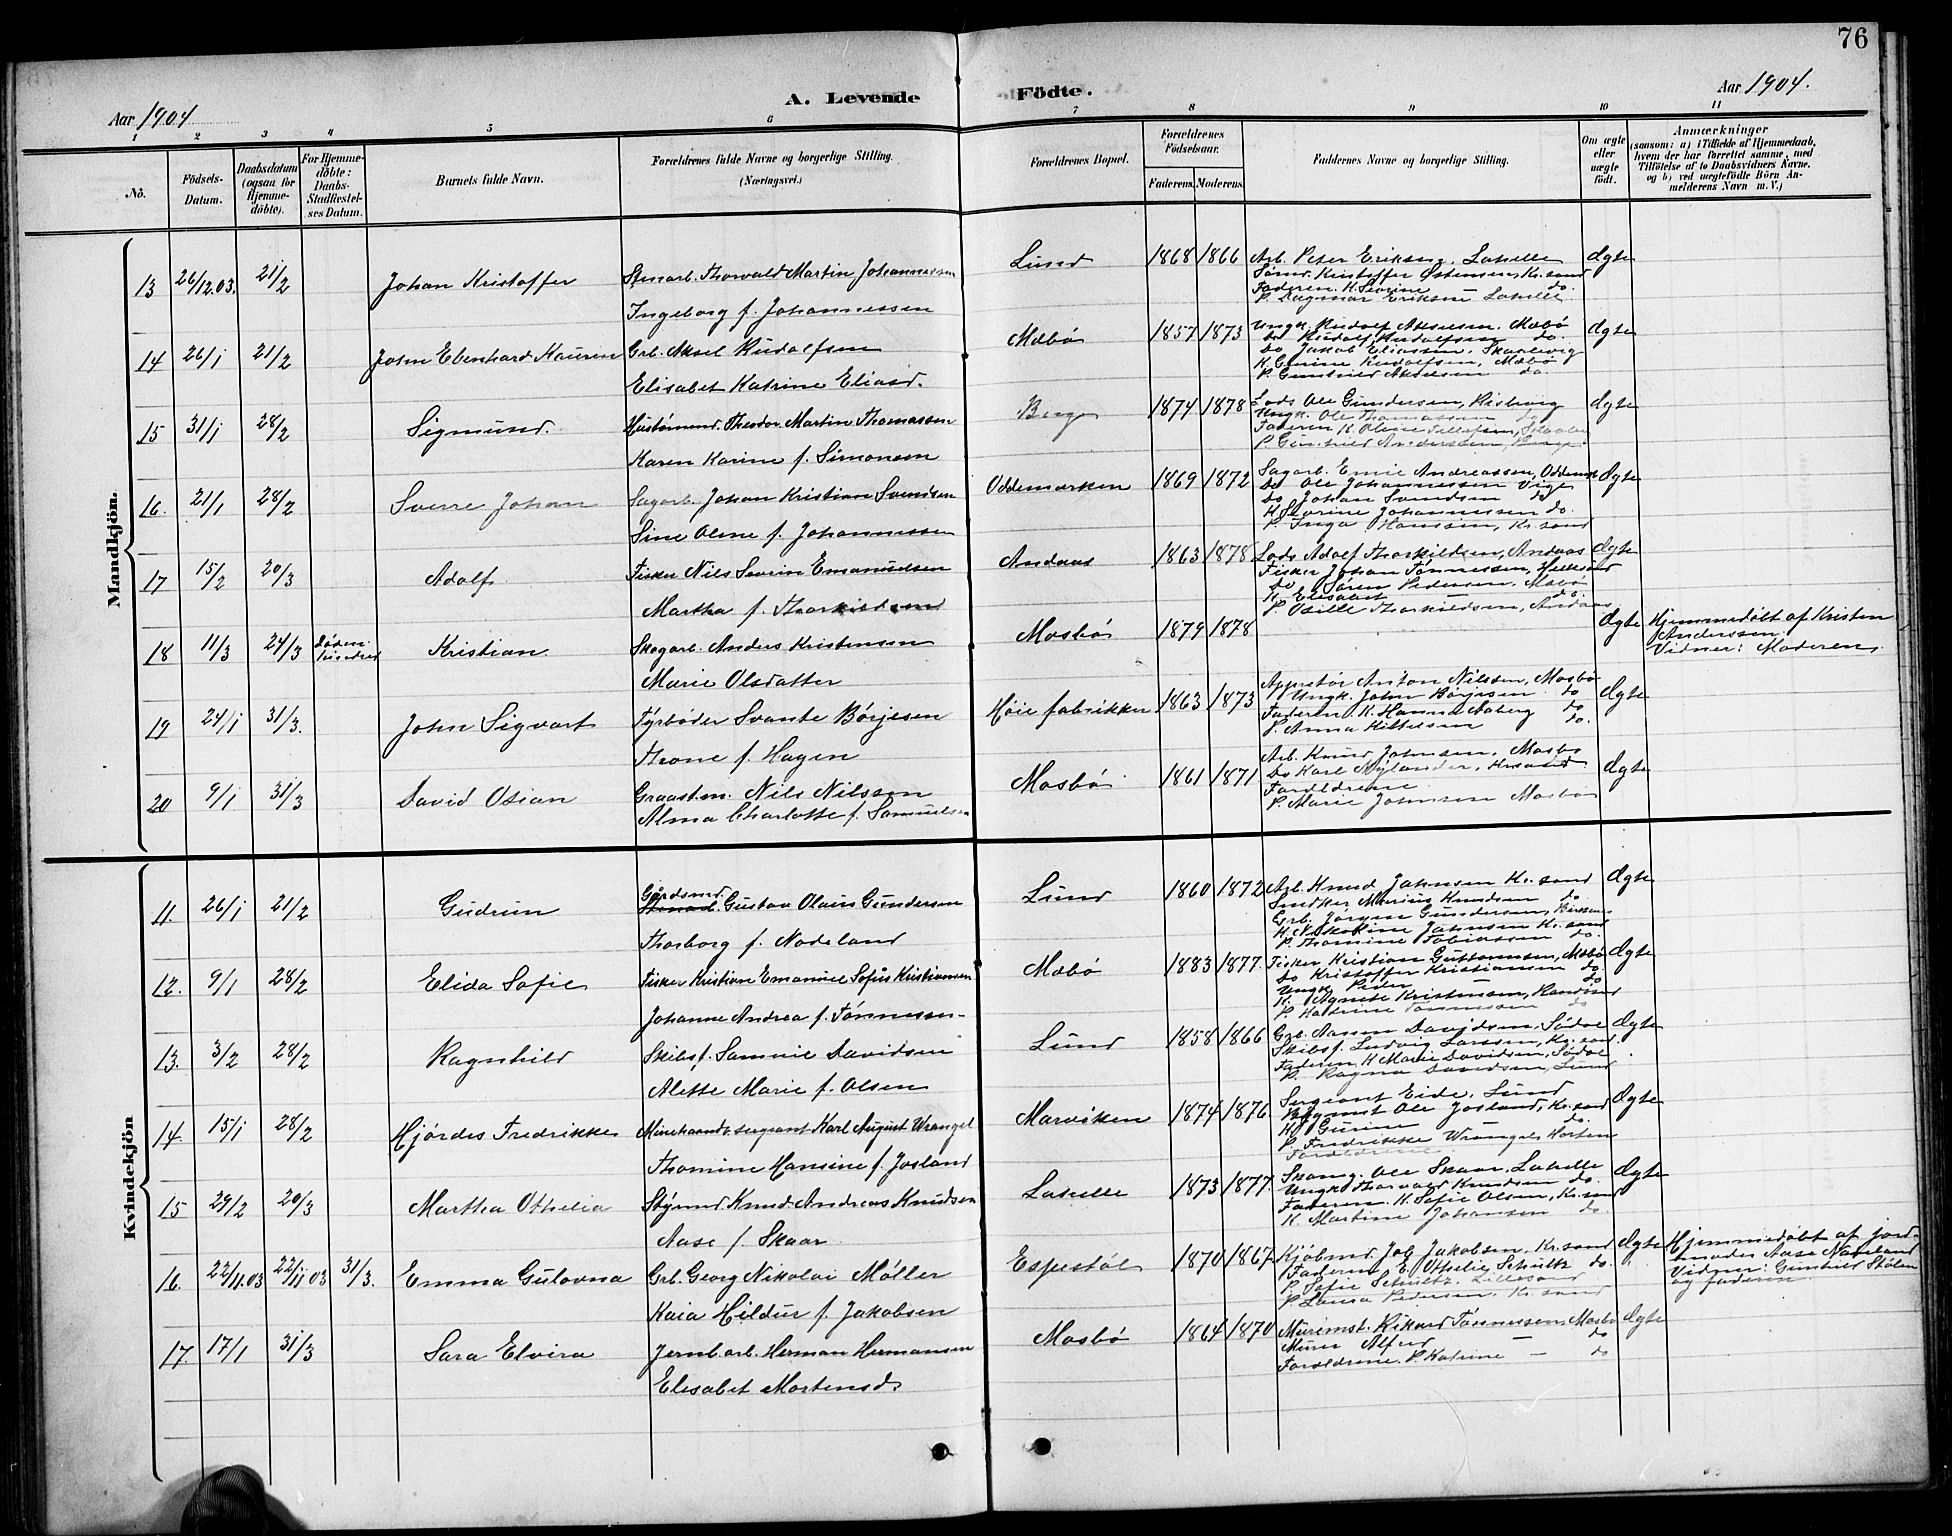 76
Aar 1904
A. Levende Födte.
Aar 1904.
1 2 3 4 5 6 7 8 9 10 11
No.
Födsels-Datum.
Daabsdatum (ogsaa for Hjemmedöbte).
For Hjemmedöbte: Daabs-Stadfæstelses Datum.
Barnets fulde Navn.
Forældrenes fulde Navne og borgerlige Stilling. (Næringsvei.)
Forældrenes Bopæl.
Forældrenes Födselsaar.
Faderens. Moderens.
Faddernes Navne og borgerlige Stilling.
Om ægte eller uægte födt.
Anmærkninger
(saasom: a) i Tilfælde af Hjemmedaab, hvem der har forrettet samme, med Tilföielse af to Daabsvidners Navne. og b) ved uægtefödte Börn Anmelderens Navn m. V.)
Mandkjön.
13 26/12.03. 21/2 Johan Kristoffer Stenarb. Thorvald Martin Johannessen Lund 1868 1866 Arb. Peter Eriksen, Lahelle Ægte
Ingeborg f. Johannessen
Sömd. Kristoffer Östensen, Kr.sand
Faderen. K. Severine do.
P. Dagmar Eriksen Lahelle
14 26/1 21/2 John Ebenhard Kauren Grb. Aksel Rudolfsen Mæbö 1857 1873 Ungk. Rudolf Akselsen, Mæbö Ægte
Elisabet Katrine Eliasd.
Do Rudolf Rudolfsen do.
Do Jakob Eliassen, Skarlevig
K. Gurine Rudolfsen, Mæbö
P. Gunhild Akselsen do
15 31/1 28/2 Sigmund. Husömand. Theodor Martin Thomassen Berge 1874 1878 Lods Ole Gundersen, Risborg Ægte
Karen Karine f. Simonsen
Ungk. Ole Thomassen do
Faderen K. Oline Tellefsen
P. Gunhild Andersen, Berge
16. 21/1 28/2 Sverre Johan Sagarb. Johan Kristian Svendsen Oddemarken 1869 1872 Sagarb. Emil Andreassen, Oddemark Ægte
Sine Oline f. Johannessen
Do Ole Johannessen Vige
Do Johan Svendsen do
K. Severine Johannessen do.
P. Inga Hansen, Kr.sand
17 15/2 20/3 Adolf Fisker Nils Severin Emanuelsen Andaas 1863 1878 Lods Adolf Thorkildsen, Andaas Ægte
Martha f. Thorkildsen
Fisker Johan Tönnessen, Hellesund
Do Sören Pedersen, Mæbö
K. Elisabet do.
P. Osille Thorkildsen, Andaas
18 11/3 24/3 Döden indtraad Kristian Skogarb. Anders Kristensen Mosbö 1879 1878 Ægte Hjemmedöbt af Kristen
Marie Olsdatter
Anderssen
Vidner: Moderen
19 24/1 31/3. John Sigvart Fyrböder Svante Börjesen Höie fabrikker 1863 1873 Appretör Anton Nilssen, Mosbö Ægte
Throne f. Hagen
Ungk. John Börjesen do
Faderen. K. Hanna Aaberg do
P. Anna Kittelsen do.
20 9/1 31/3 David Osian Graast.m. Nils Nilssen Mosbö 1861 1871 Arb. Knud Johnsen, Mosbö Ægte
Alma Charlotte f. Samuelsen
Do Karl Nylander, Kr.sand
Forældrene
P. Marie Johnsen Mosbö
Kvindekjön
11. 26/1 21/2 Gudrun Gårdsmd. Gustav Olaus Gundersen Lund 1860 1872 Arb. Knud Johnsen Kr.sand Ægte
Thorborg f. Nodeland
Snedker Marius Knudsen do
Grb. Jörgen Gundersen, Birkenes
K. Nikoline Johnsen Kr.sand
P. Thomine Tobiassen do.
12. 9/1 28/2 Elida Sofie Fisker Kristian Emanuel Sofus Kristiansen Mæbö 1883 1877. Fisker Kristian Guttormsen, Mæbö Ægte
Johanne Andrea f. Tönnessen
Do Kristoffer Kristiansen do.
Ungk. Peder do
K. Agnete Kristensen, Randösund
P. Katrine Tönnessen do
13. 3/2 28/2 Ragnhild Skibsf. Samuel Davidsen Lund 1858 1866 Grb. Aanen Davidsen, Södal Ægte
Alette Marie f. Olsen
Skibsf. Ludvig Larssen, Kr.sand.
Faderen K. Marie Davidsen, Södal
P. Ragna Davidsen, Lund
14. 15/1 28/2 Hjördes Fredrikke Minehaandv.sergeant Karl August Wrangel Marviken 1874 1876. Sergeant Eide, Lund Ægte
Thomine Hansine f. Josland
Bygmst. Ole Josland, Kr.sand
K. Gurine do.
P. Fredrikke Wrangel, Horten
Forældrene
15 29/2 20/3 Martha Othelia Stgmd Knud Andreas Knudsen Lahelle 1873 1877. Skomg. Ole Skaar, Lahelle Ægte
Aase f. Skaar
Ungk. Thorvald Knudsen do.
Faderen. K. Sofie Olsen, Kr.sand
K. Martine Johansen do.
16. 22/11.03 22/11 03 31/3. Emma Gulovna Grb. Georg Nikolai Möller Espestöl 1870 1867. Kjöbmd. Job Jakobsen, Kr.sand Ægte Hjemmedöbt af jord-
Kaia Hildur f. Jakobsen
Faderen E. Othelie Schultz do. moder Aase Naveland
P. Sofie Schultz. Lillesand Vidner: Gunhild Stölen
P. Laura Pedersen, Kr.sand og faderen.
17. 17/1 31/3 Sara Elvira Jernb.arb. Herman Hermansen Mosbö 1864 1870 Murmst. Rikard Tönnessen, Mosbö Ægte
Elisabet Mortensd.
Murer Alfred — do
Forældrene. P. Katrine — do